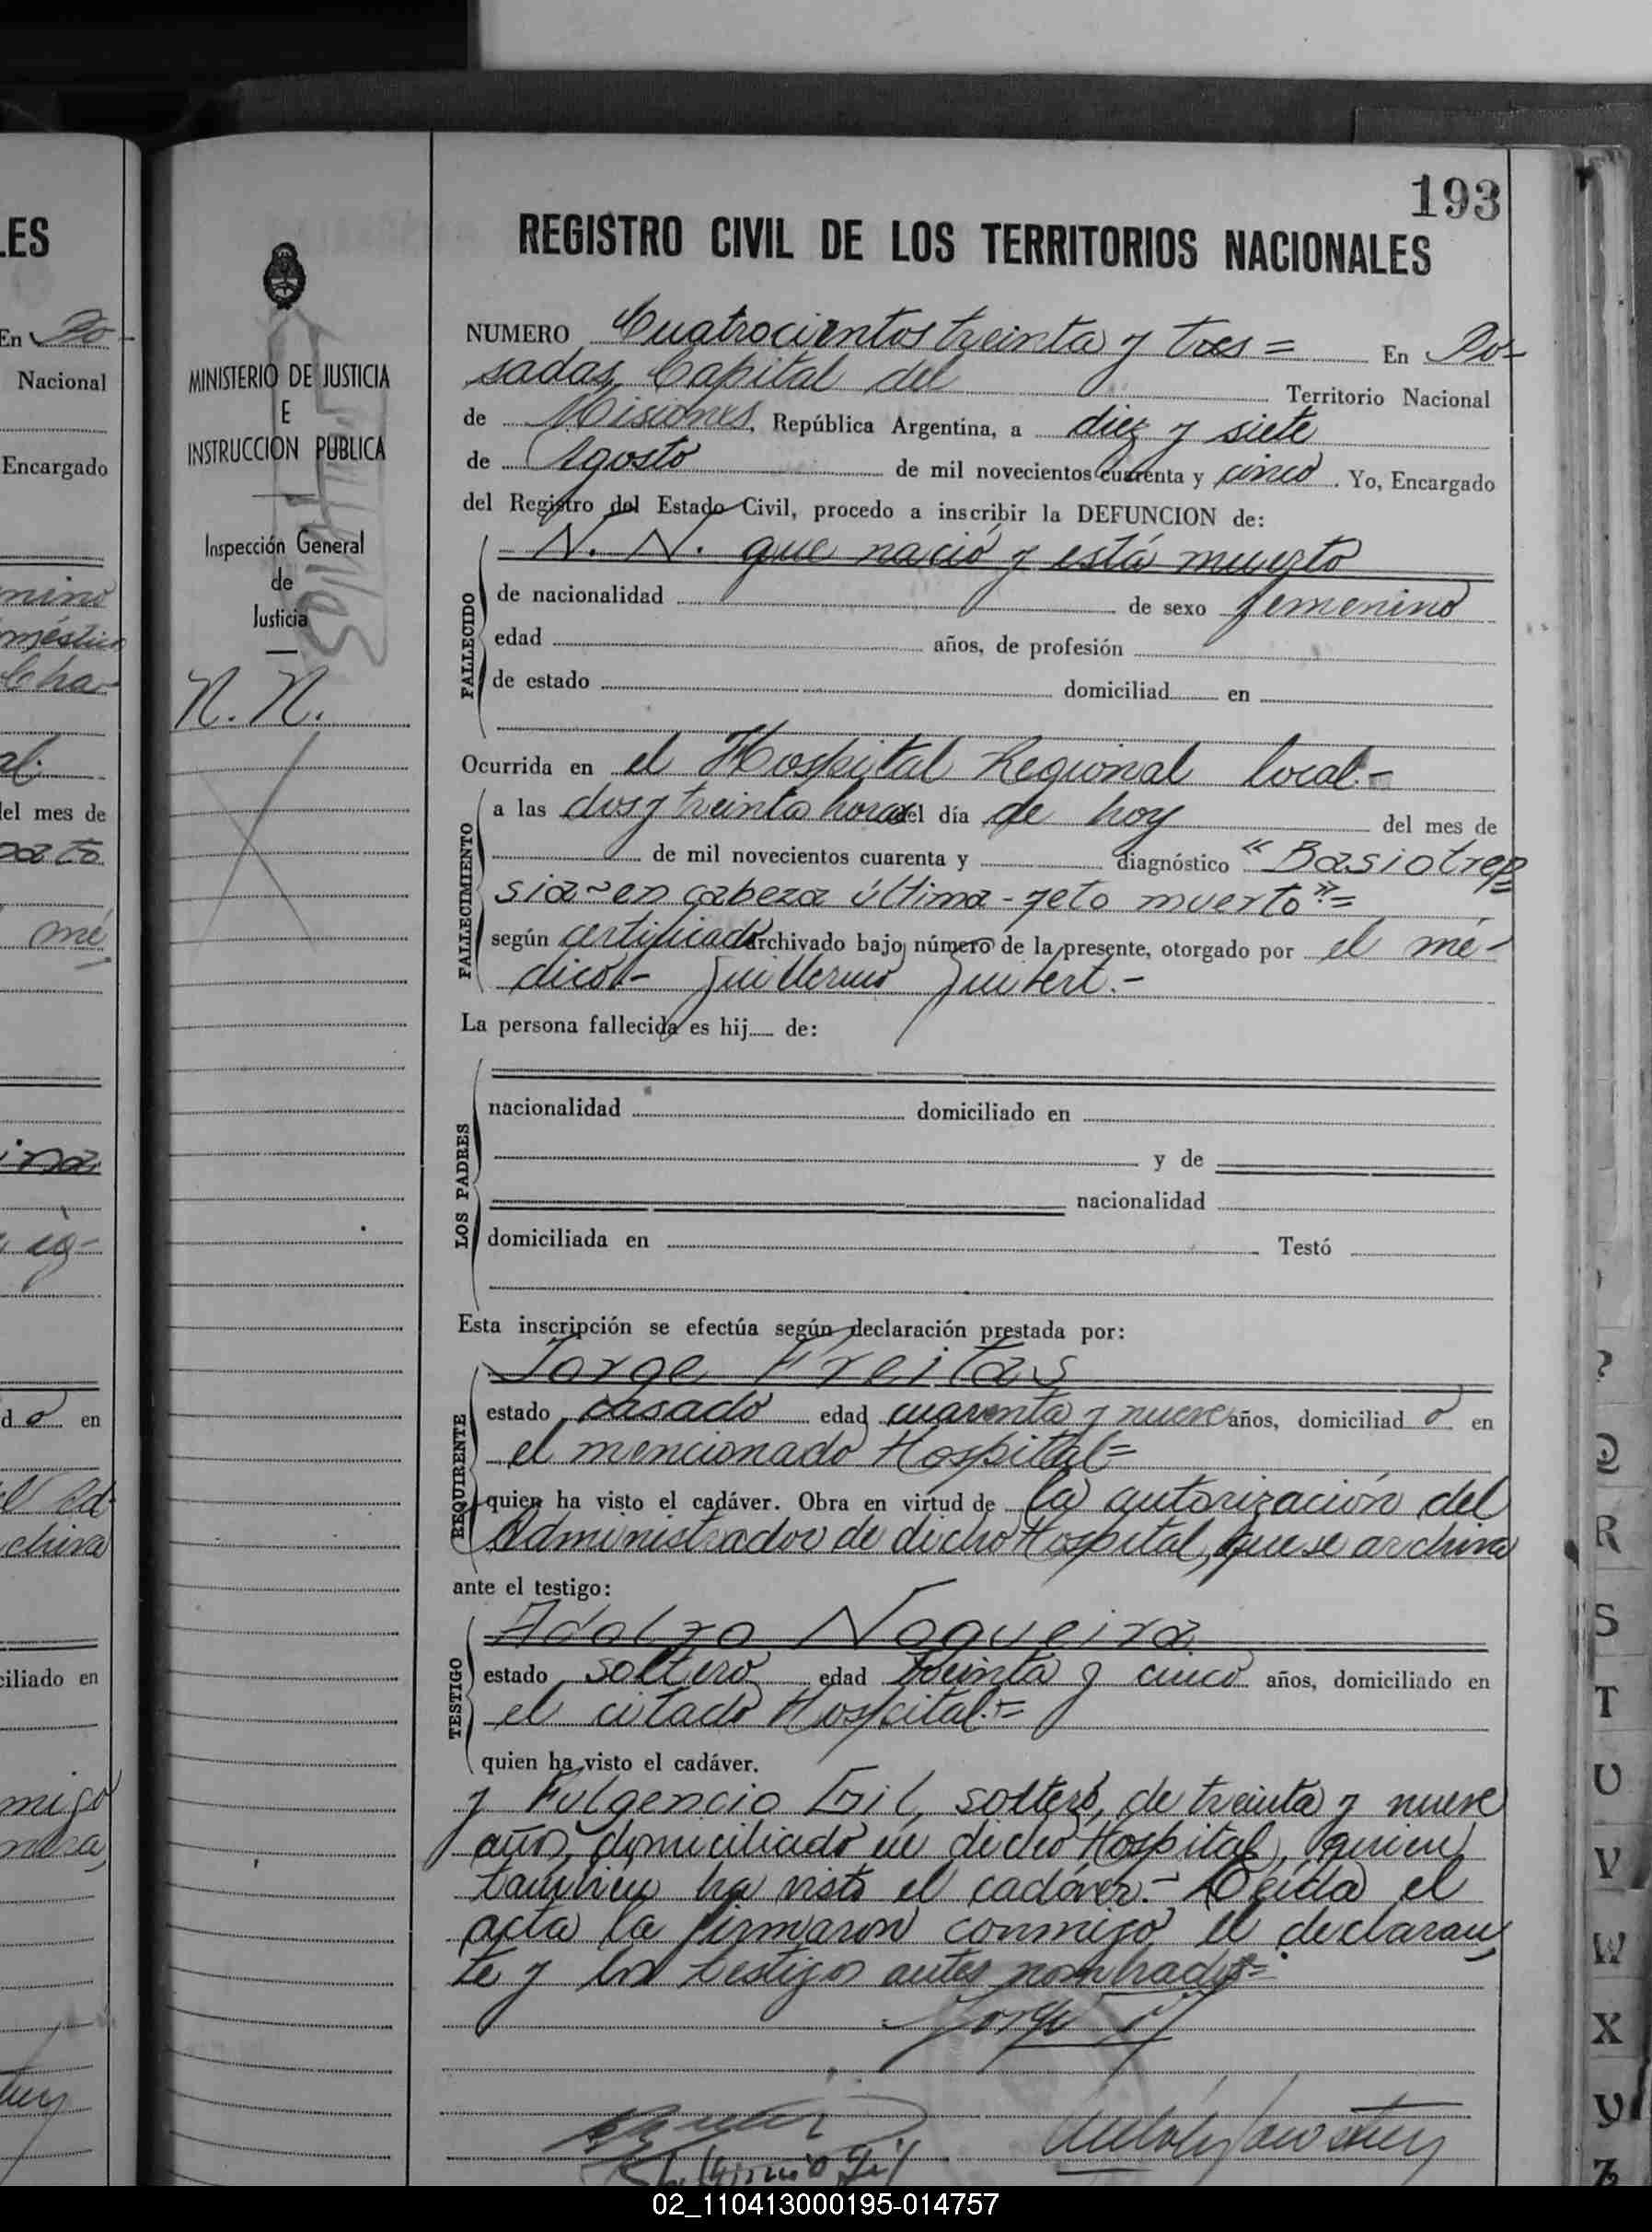 193
REGISTRO CIVIL DE LOS TERRITORIOS NACIONALES
NUMERO Cuatrocientos treinta y tres = En Po-
sadas, Capital del Territorio Nacional
de Misiones, República Argentina, a diez y siete
de Agosto de mil novecientos cuarenta y cinco. Yo, Encargado
del Registro del Estado Civil, procedo a inscribir la DEFUNCION de:
N. N. que nació y está muerto
de nacionalidad de sexo femenino
edad años, de profesión
de estado domiciliad en
FALLECIDO
Ocurrida en el Hospital Regional local.-
a las dos y treinta horas del día de hoy del mes de
de mil novecientos cuarenta y diagnóstico "Basiotrep
sia-en cabeza última-feto muerto"=
según certificado archivado bajo número de la presente, otorgado por el mé-
dico- Guillermo
FALLECIMIENTO
La persona fallecida es hij de:
nacionalidad domiciliado en
y de
nacionalidad
domiciliada en Testó
LOS PADRES
Esta inscripción se efectúa según declaración prestada por:
Jorge Freitas
estado casado edad cuarenta y nueve años, domiciliad o en
el mencionado Hospital=
quien ha visto el cadáver. Obra en virtud de la autorización del
Administrador de dicho Hospital, que se archiva
REQUIRENTE
ante el testigo:
Adolfo Nogueira
estado soltero edad treinta y cinco años, domiciliado en
el citado Hospital.=
quien ha visto el cadáver.
TESTIGO
y Fulgencio Gil, soltero, de treinta y nueve
años, domiciliado en dicho Hospital, quien
también ha visto el cadáver.- Leída el
acta la firmaron conmigo el declaran
te y los testigos antes nombrados=
Jorge
Fulgencio Gil
MINISTERIO DE JUSTICIA
E
INSTRUCCION PUBLICA
Inspección General
de
Justicia
N. N.
LES
En Po-
Nacional
Encargado
al.
del mes de
mé
d o en
archiva
ciliado en
Q
R
S
T
U
V
W
X
Y
Z
02_110413000195-014757